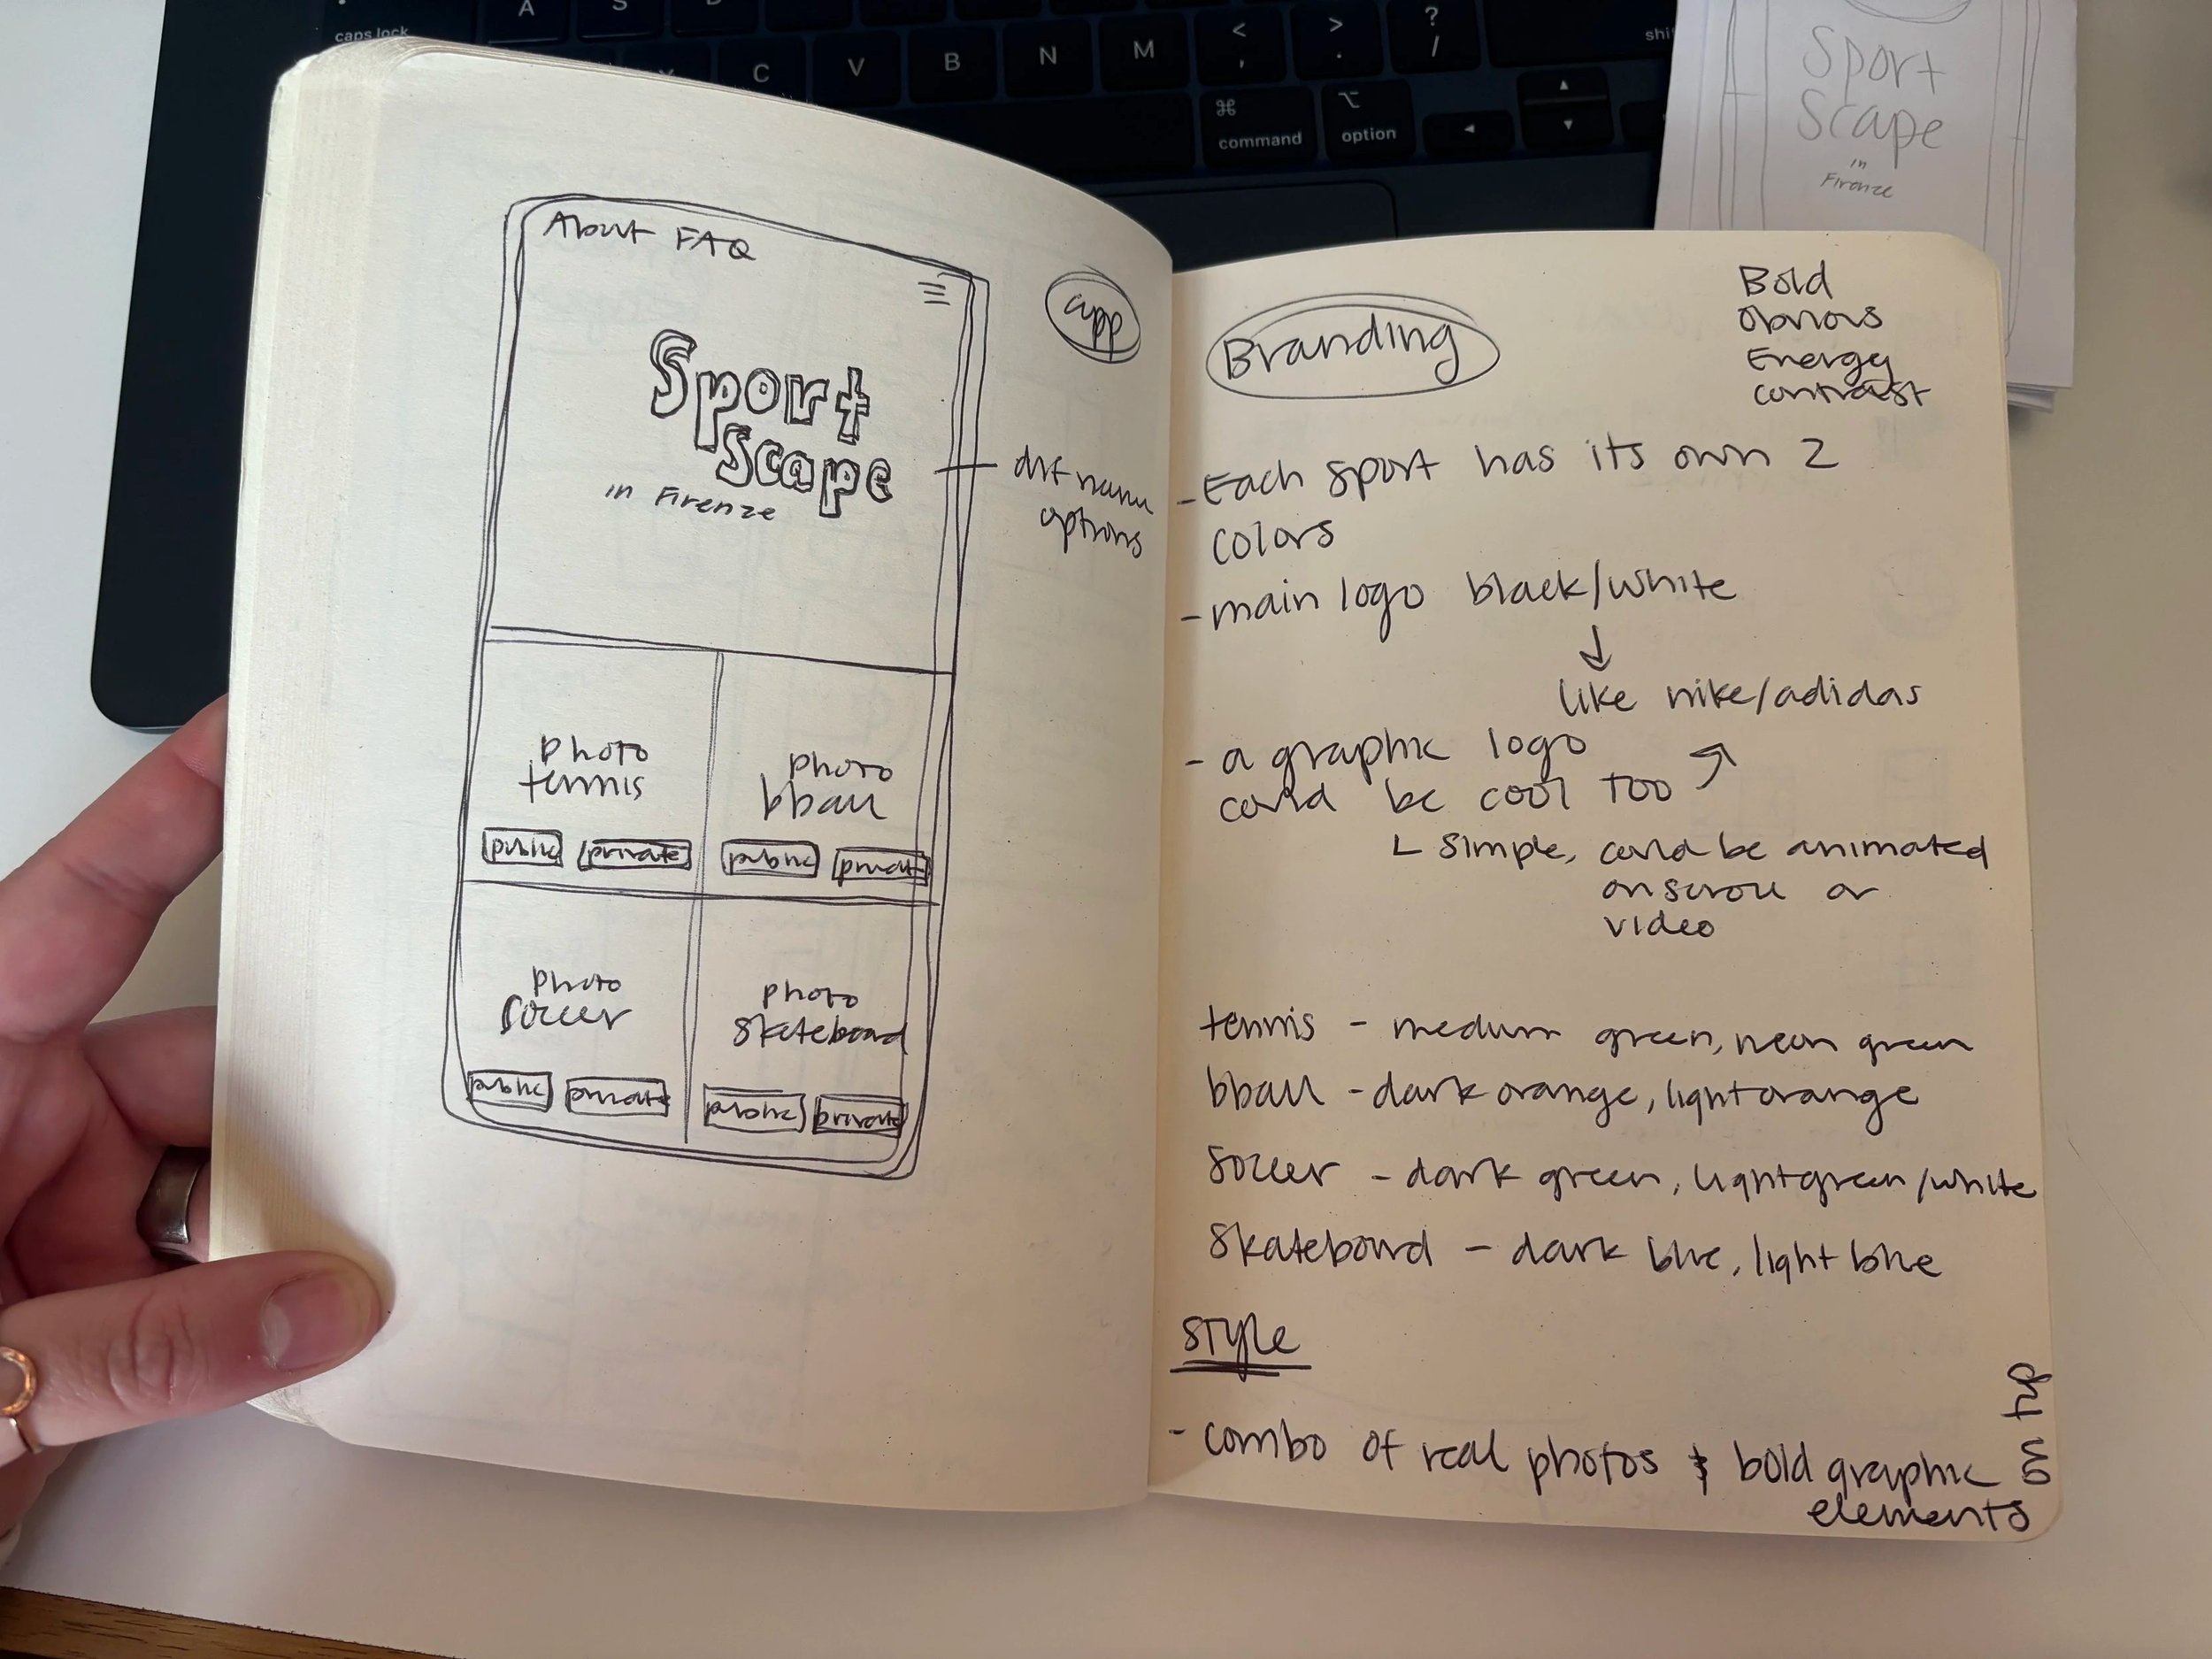 caps lock
A S D
C V B N M < , > . ? /
⌘ command
⌥ option
Sport
Scape
in
Firenze
About FAQ
app
Sport
Scape
in Firenze
options
photo
tennis
public private
photo
bball
public private
photo
soccer
public private
photo
skateboard
public private
Branding
Bold
obvious
Energy
contrast
- Each sport has its own 2
colors
- main logo black/white
↓
like nike/adidas
- a graphic logo
could be cool too
simple, could be animated
on scroll or
video
tennis - medium green, neon green
bball - dark orange, light orange
soccer - dark green, light green/white
skateboard - dark blue, light blue
STYLE
- combo of real photos & bold graphic
elements